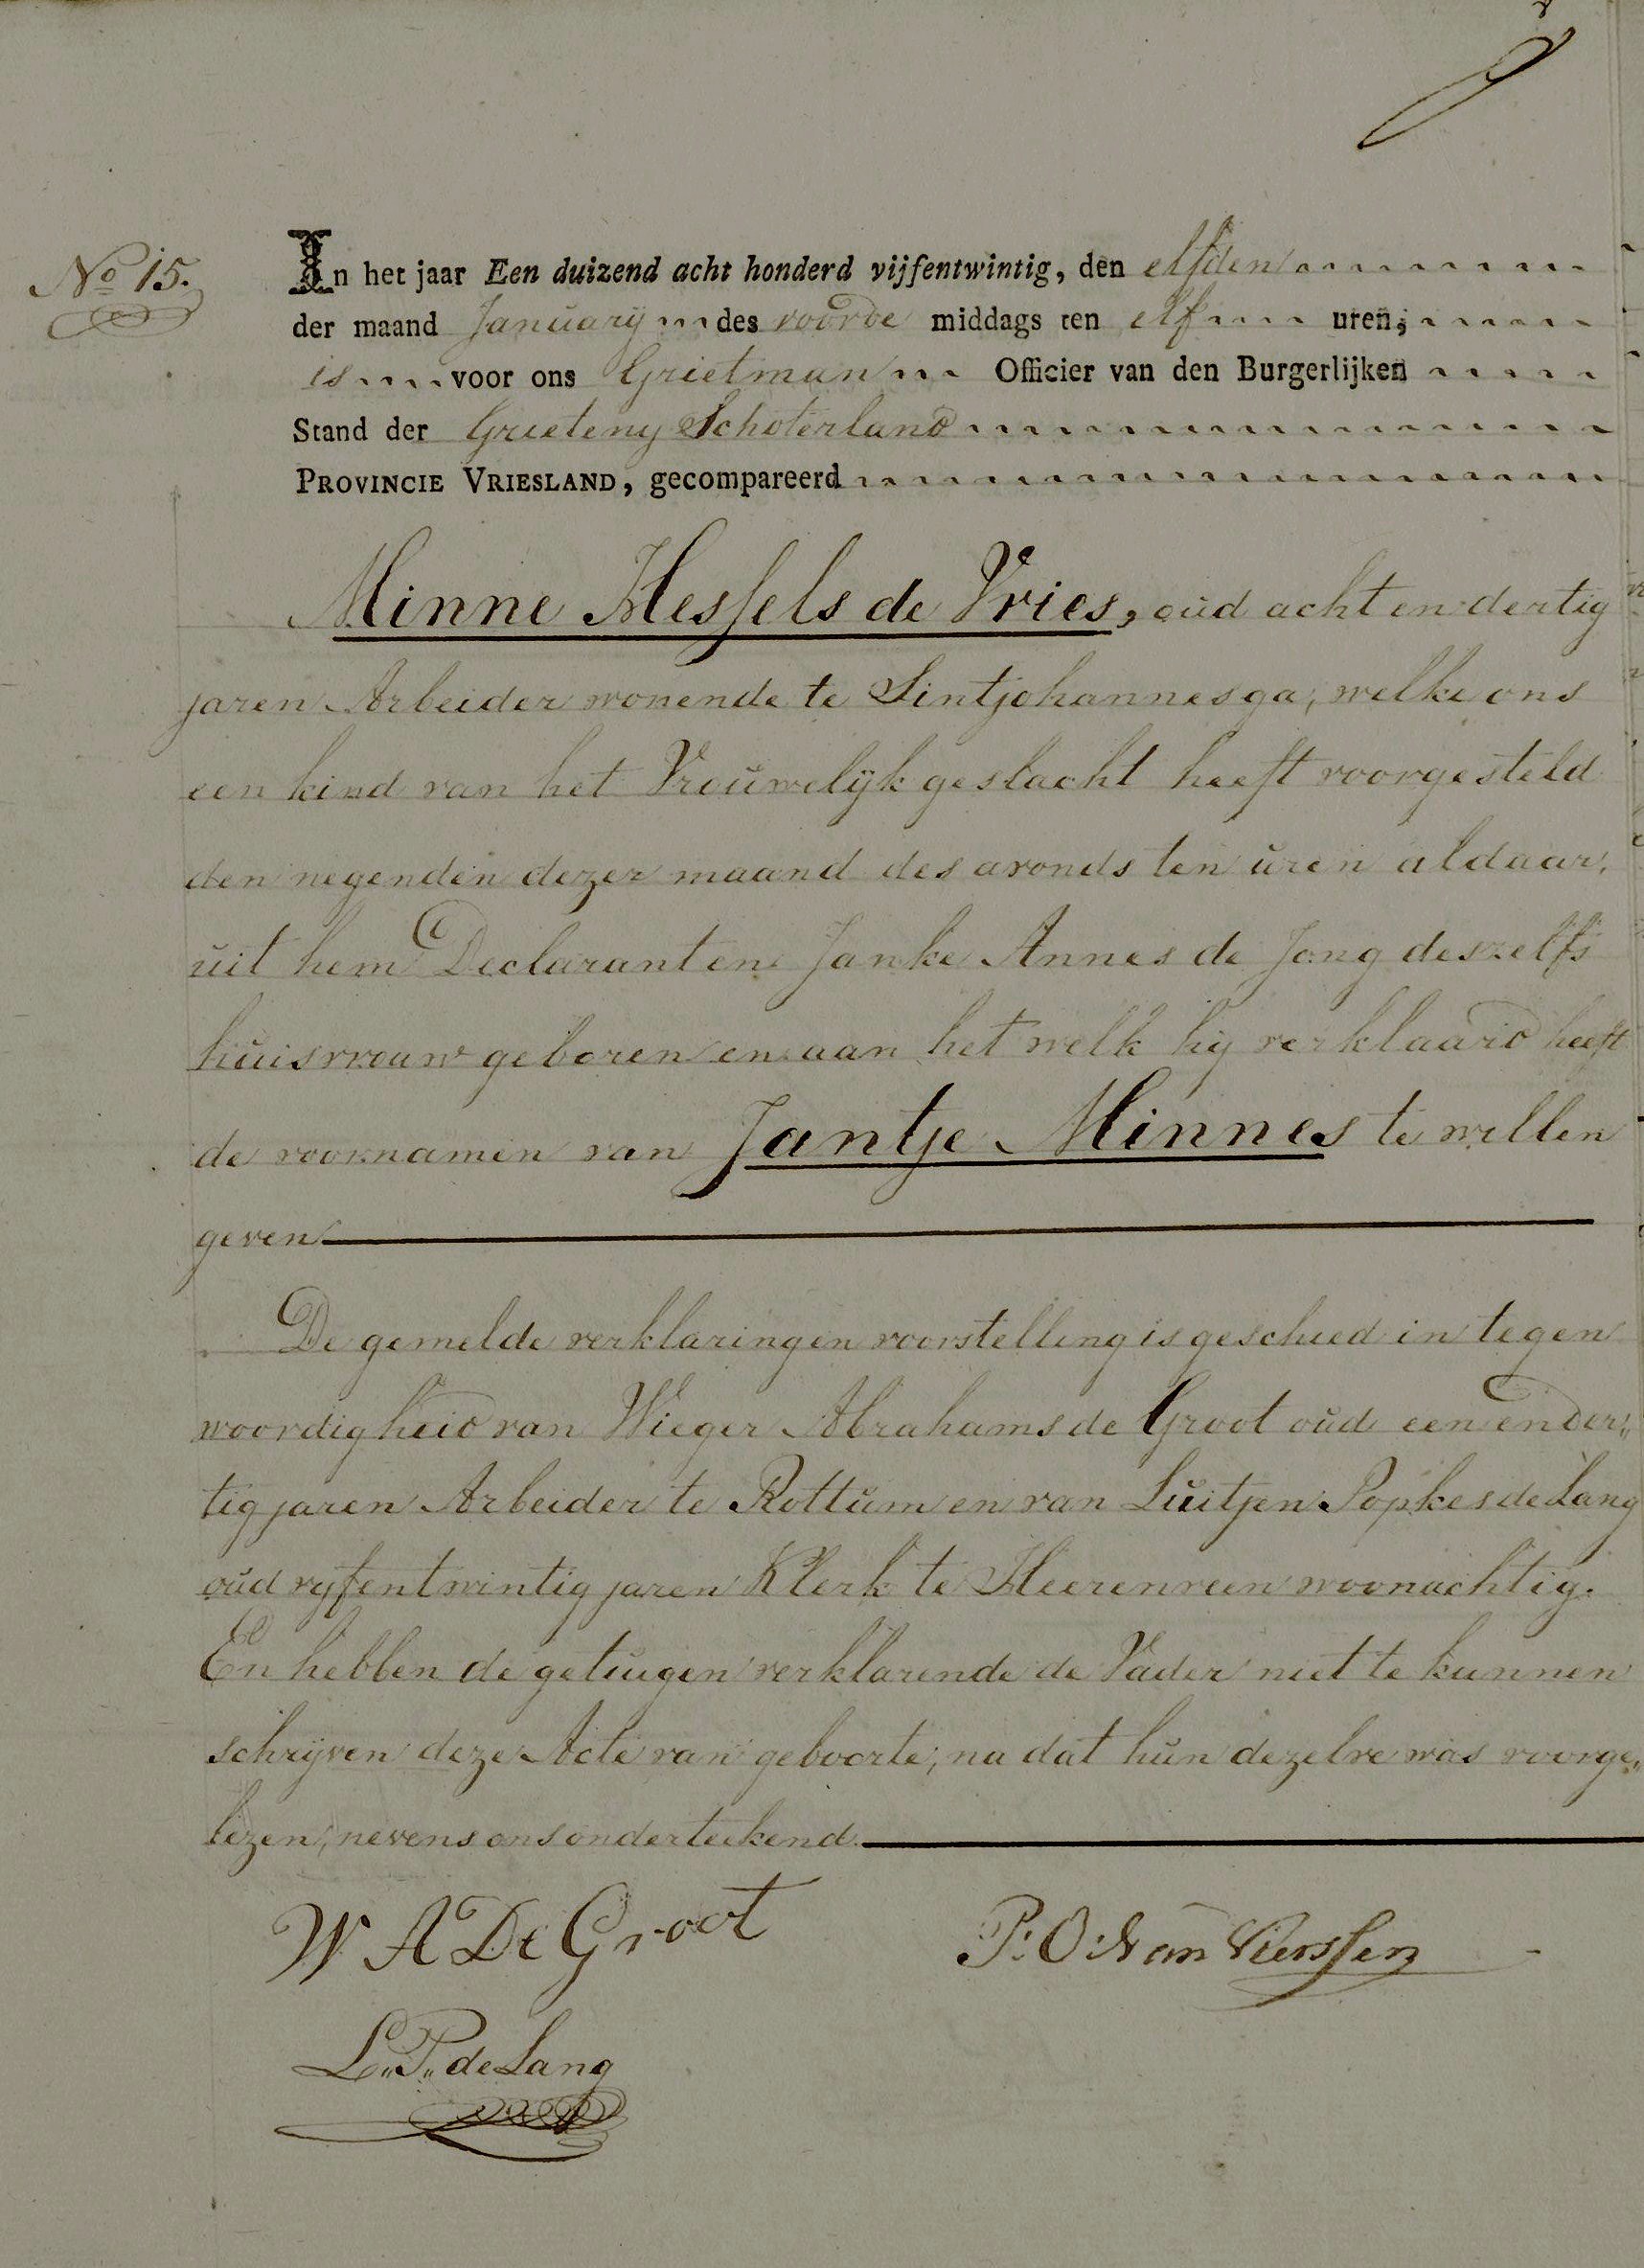 No 15.
In het jaar Een duizend acht honderd vijfentwintig, den elfden
der maand January des voorde middags ten elf uren;
is voor ons Grietman Officier van den Burgerlijken
Stand der Grieteny Schoterland
PROVINCIE VRIESLAND, gecompareerd
Minne Hessels de Vries, oud acht en dertig
jaren Arbeider wonende te Sintjohannesga, welke ons
een kind van het Vrouwelijk geslacht heeft voorgesteld
den negenden dezer maand des avonds ten uren aldaar,
uit hem Declarant en Janke Annes de Jong deszelfs
huisvrouw geboren en aan het welk hij verklaard heeft
de voornamen van Jantje Minnes te willen
geven
De gemelde verklaring en voorstelling is geschied in tegen
woordigheid van Wieger Abrahams de Groot oud een en der„
tig jaren Arbeider te Rottum en van Luitjen Popkes de Lang
oud vyfentwintig jaren Klerk te Heerenveen woonachtig.
En hebben de getuigen verklarende de Vader niet te kunnen
schrijven deze Acte van geboorte, na dat hun dezelve was voorge„
lezen, nevens ons onderteekend.
W A De Groot P: O: Van Vierssen
L„P„ de Lang